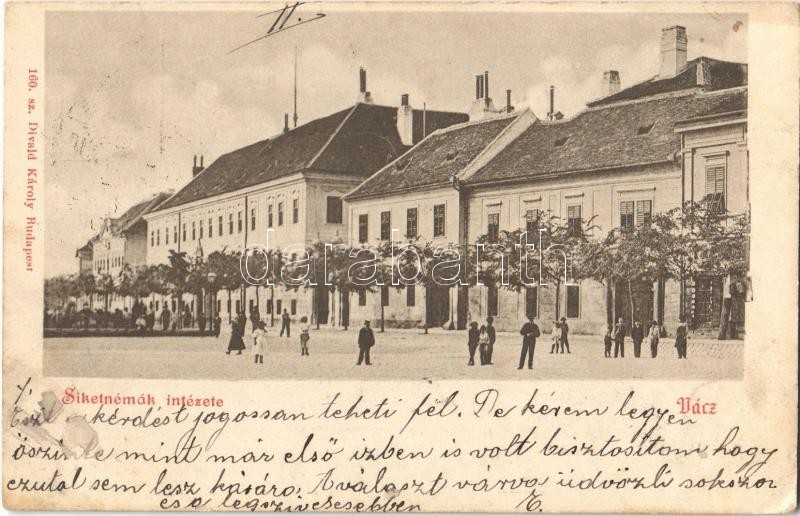 II.
160. sz. Divald Károly Budapest
darabanth
Siketnémák intézete
Vácz
Ezt a kérdést jogosan teheti fel. De kérem legyen
őszinte mint már első izben is volt biztosítom hogy
ezutal sem lesz kárára. A választ várva üdvözli sokszor
és a legszívesebben E.